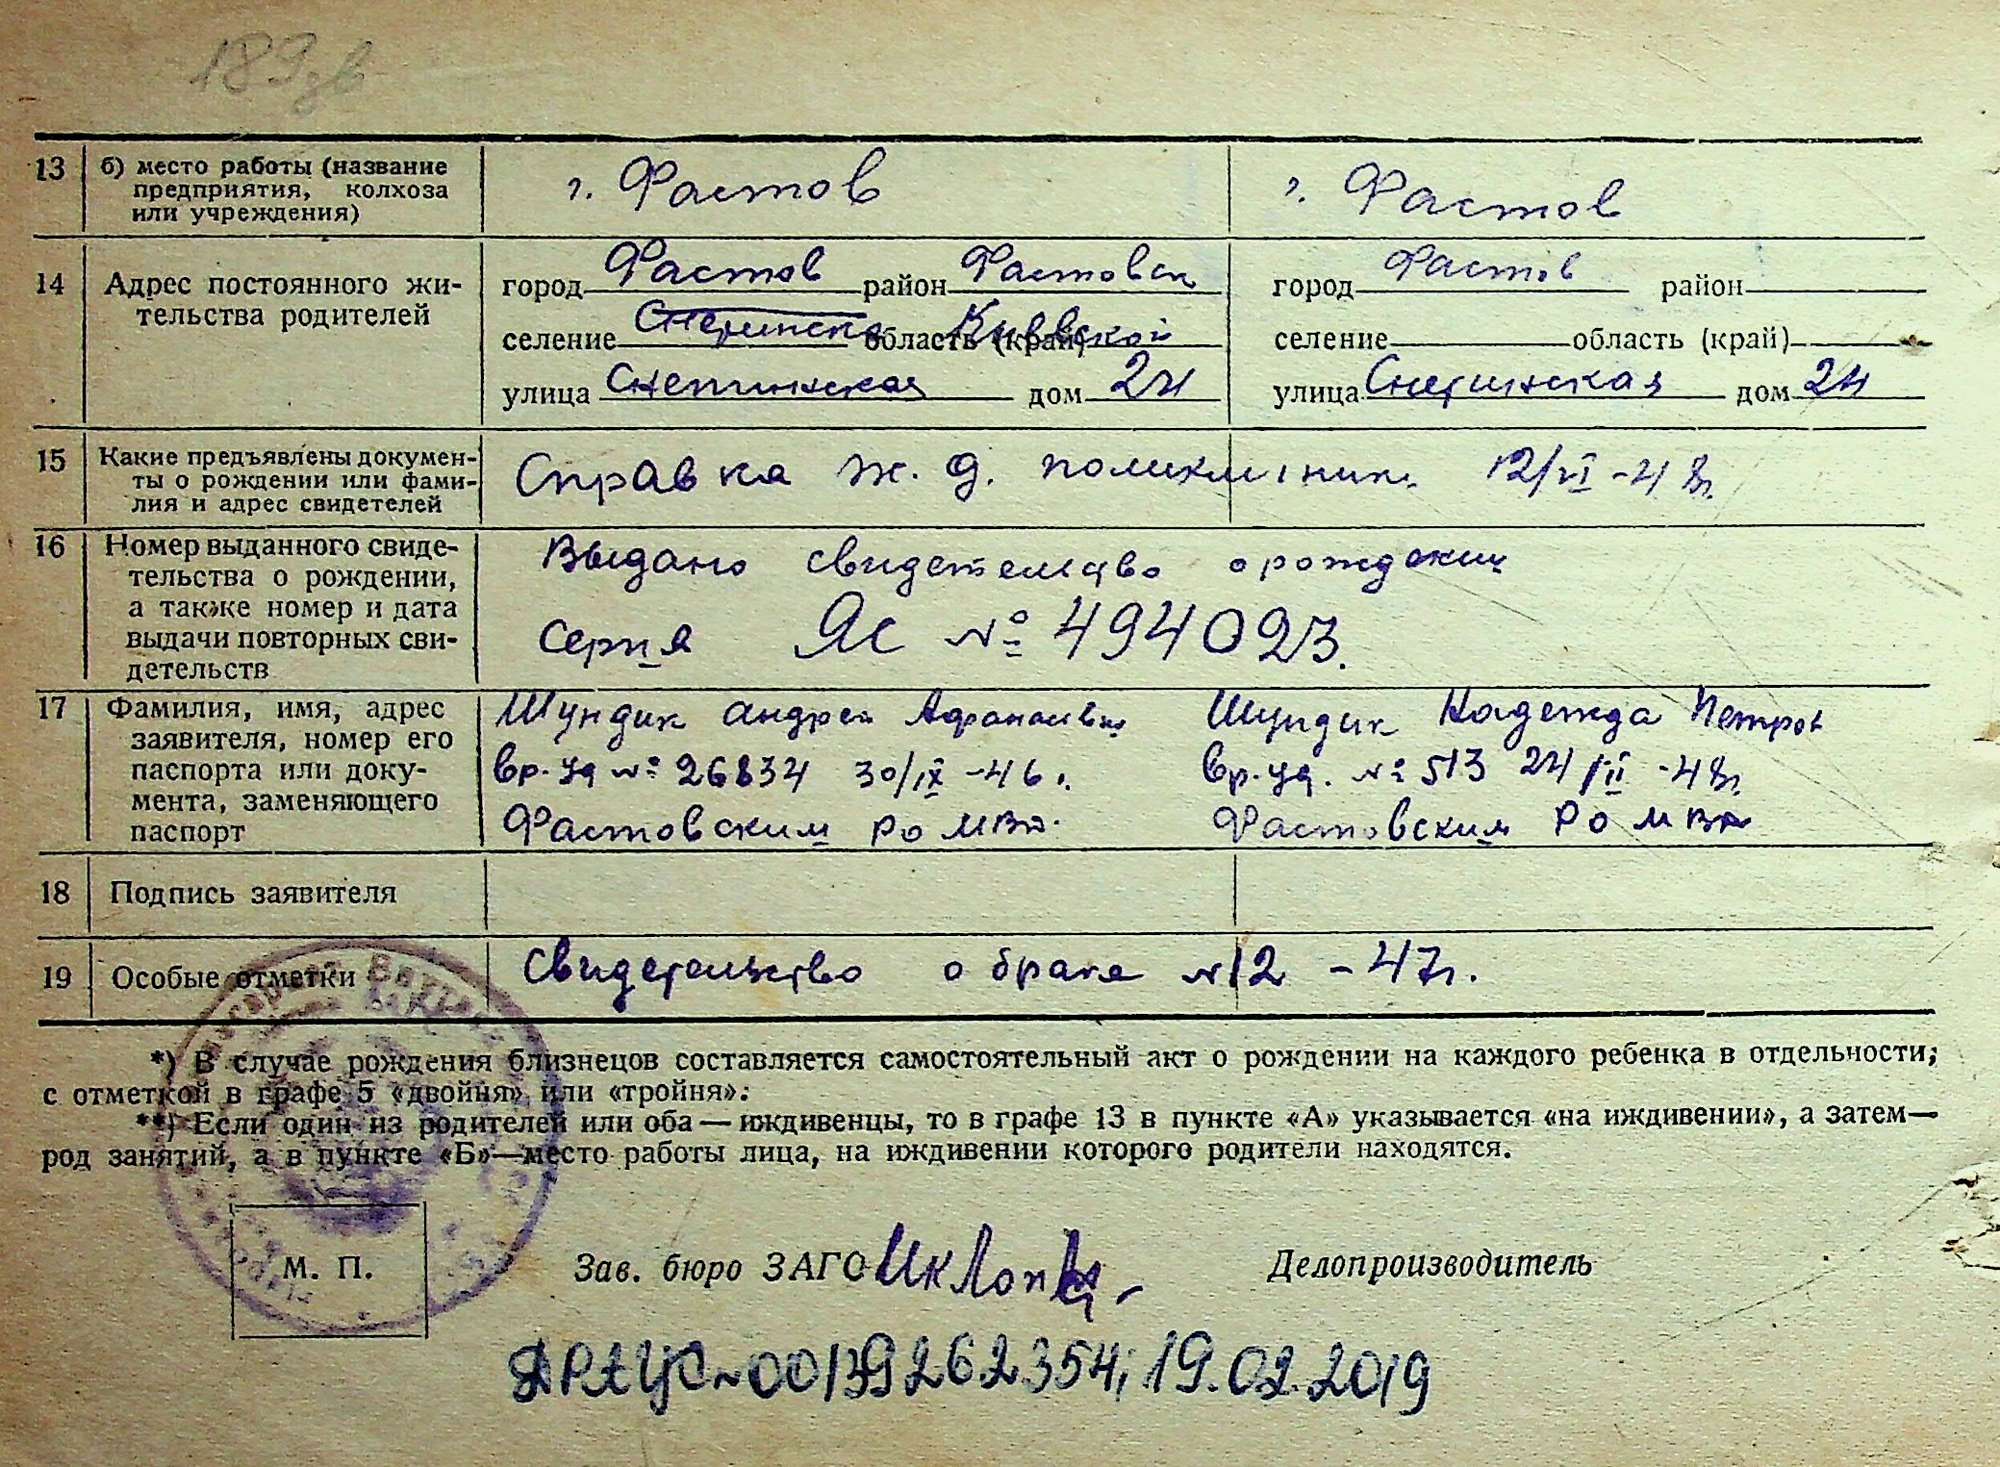 189зв
13 б) место работы (название предприятия, колхоза или учреждения) г. Фастов г. Фастов
14 Адрес постоянного жи-
тельства родителей
город Фастов район Фастовск город Фастов район
селение область (край) Киевской селение область (край)
улица дом 24 улица дом 24
15 Какие предъявлены докумен-
ты о рождении или фами-
лия и адрес свидетелей
Справка ж. д. 12/VI-48г.
16 Номер выданного свиде-
тельства о рождении,
а также номер и дата
выдачи повторных сви-
детельств
Выдано свидетельство о рождении
Серия ЯС № 494023.
17 Фамилия, имя, адрес
заявителя, номер его
паспорта или доку-
мента, заменяющего
паспорт
Шундик Андрей Афанасьевич Шундик Надежда Петров
вр. уд № 26834 30/IX-46г. вр. уд. № 513 24/II-48г.
Фастовским РО МВД. Фастовским РО МВД
18 Подпись заявителя
19 Особые отметки Свидетельство о браке №12 - 47г.
*) В случае рождения близнецов составляется самостоятельный акт о рождении на каждого ребенка в отдельности;
с отметкой в графе 5 «двойня» или «тройня»:
**) Если один из родителей или оба — иждивенцы, то в графе 13 в пункте «А» указывается «на иждивении», а затем—
род занятий, а в пункте «Б»—место работы лица, на иждивении которого родители находятся.
М. П.
Зав. бюро ЗАГС Делопроизводитель
00139262354; 19.02.2019